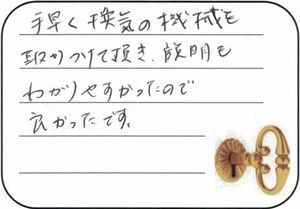 手早く換気の機械を
取りつけて頂き、説明も
わかりやすかったので
良かったです。